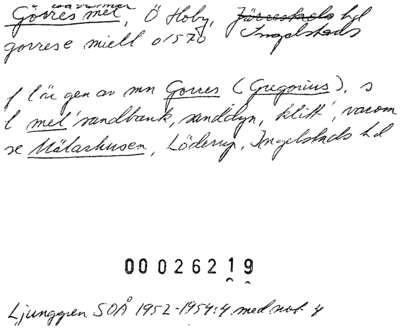 Görres mel, Ö Hoby, Järrestads hd
gorrese miell o1570 Ingelstads
f l är gen av mn Gorres (Gregorius), s
l mel 'sandbank, sanddyn, klitt', varom
se Mälarhusen, Löderup, Ingelstads hd
00026219
Ljunggren SOÅ 1952-1954:4 med not 4